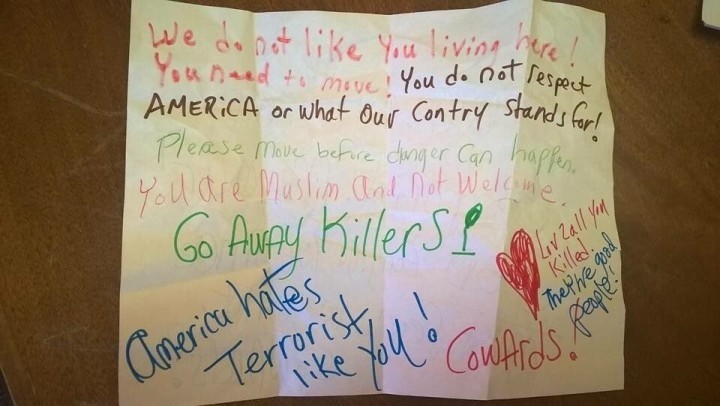 We do not like You living here!
You need to move! You do not respect
AMERICA or what our Contry stands for!
Please move before danger can happen.
You are Muslim And Not Welcome.
Go AwAY KillerS!
Luv 2 all You
Killed.
They're good
people!
America hates
Terrorist
like You!
CowArds!